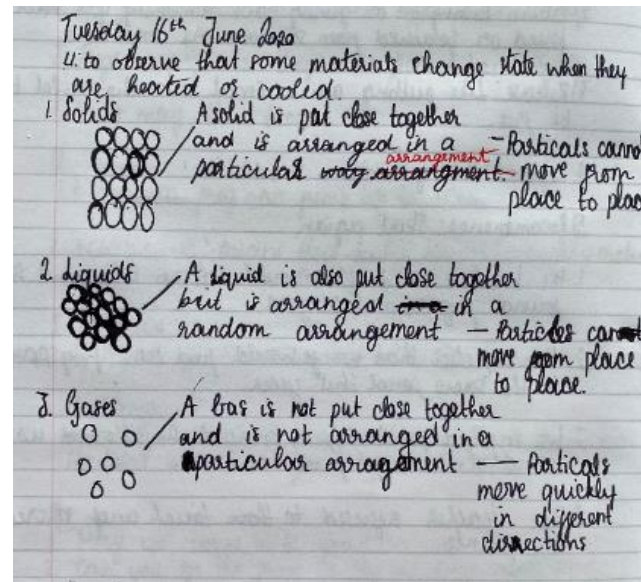 Tuesday 16th June 2020
L.I. to observe that some materials change state when they
are heated or cooled
1. Solids
A solid is put close together
and is arranged in a
particular way arrangment. arrangement
- Particals canno
move from
place to plac
2. Liquids
A liquid is also put close together
but is arranged in a in a
random arrangement
- Particles
move from place
to place.
3. Gases
A Gas is not put close together
and is not arranged in a
particular arragement
- Particals
move quickly
in different
directions